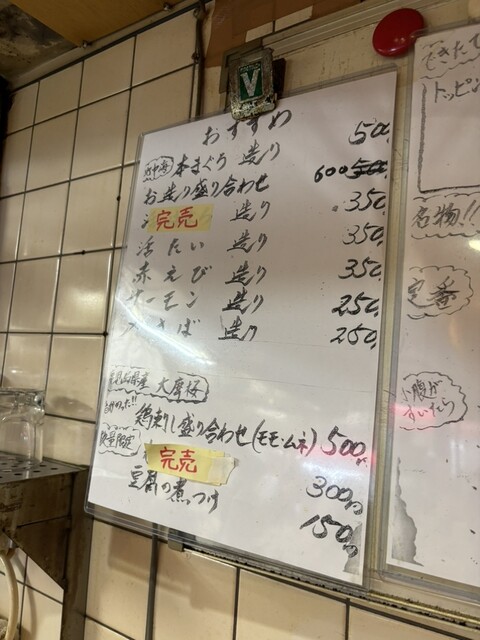 おすすめ
地中海 本まぐろ 造り 500,
お造り盛り合わせ 600 500,
完売 造り 350,
活たい 造り 350,
赤えび 造り 350,
サーモン 造り 250,
さば 造り 250,
鹿児島県産 大摩桜
数量限定
鶏刺し盛り合わせ(モモ・ムネ) 500,
完売 300,
豆腐の煮つけ 150,
できたて
トッピン
名物!!
定番
小腹が
すいたら
V